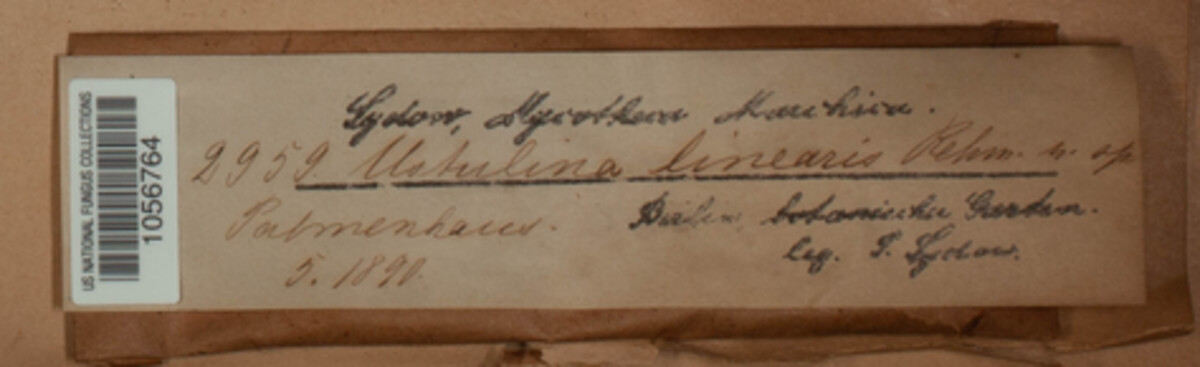 US NATIONAL FUNGUS COLLECTIONS
1056764
Sydow, Mycotheca Marchica.
2959 Ustulina linearis Rehm. n. sp
Palmenhaus.
5. 1890.
Berlin, botanischer Garten.
leg. P. Sydow.